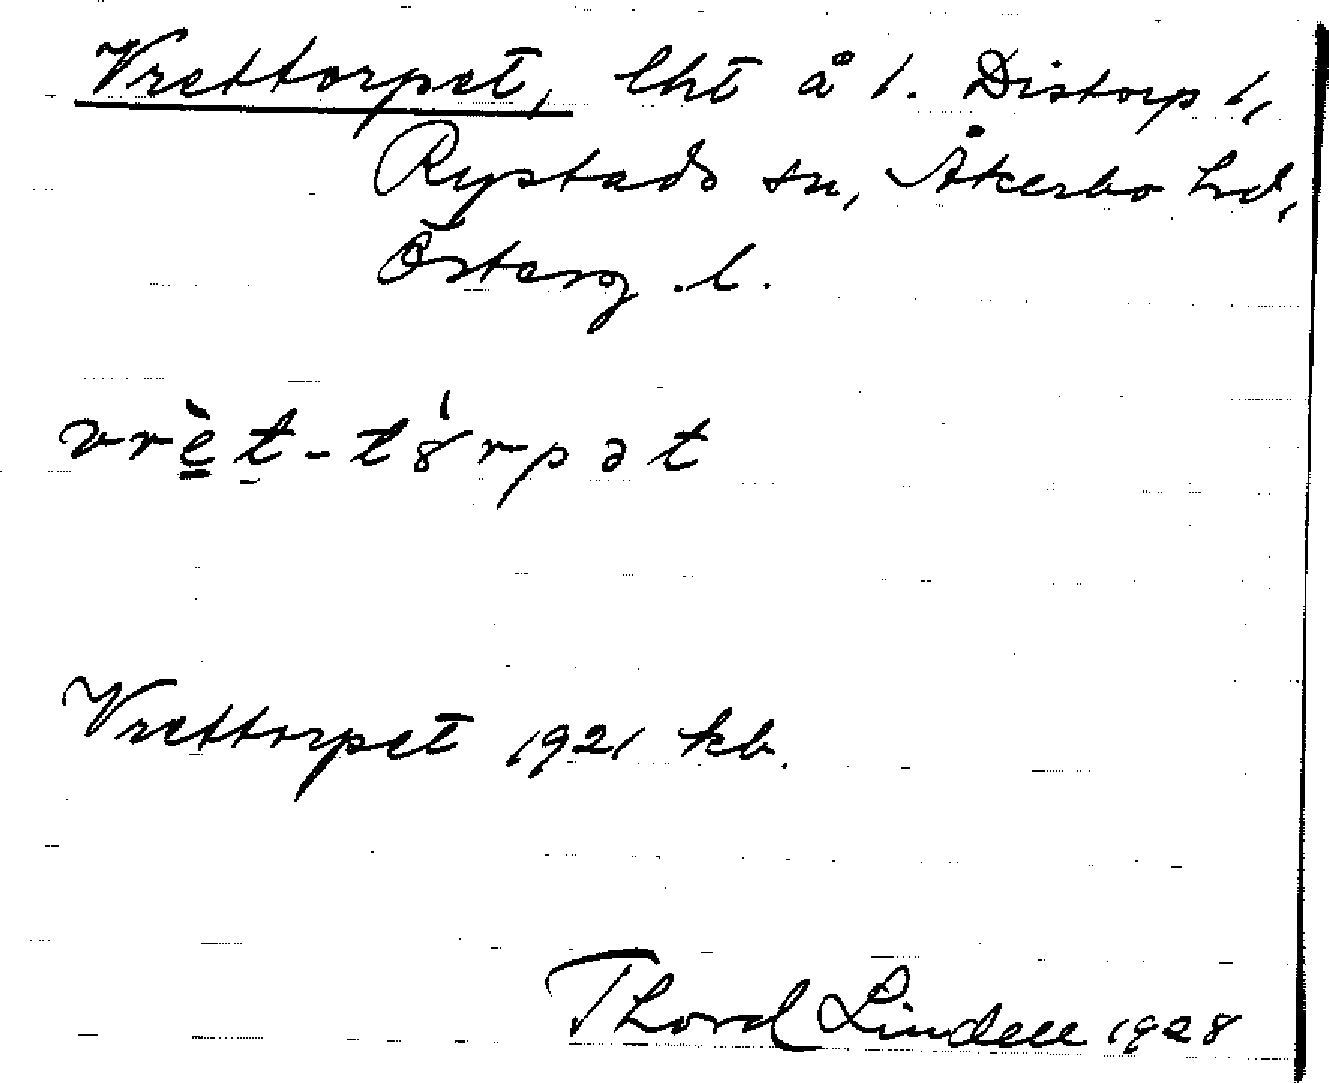 Vrettorpet, lht å l. Distorp 1,
Rystads sn, Åkerbo hd,
Österg. l.
vrè̳t-tȣ́rpət
Vrettorpet 1921 kb.
Thord Lindell 1928